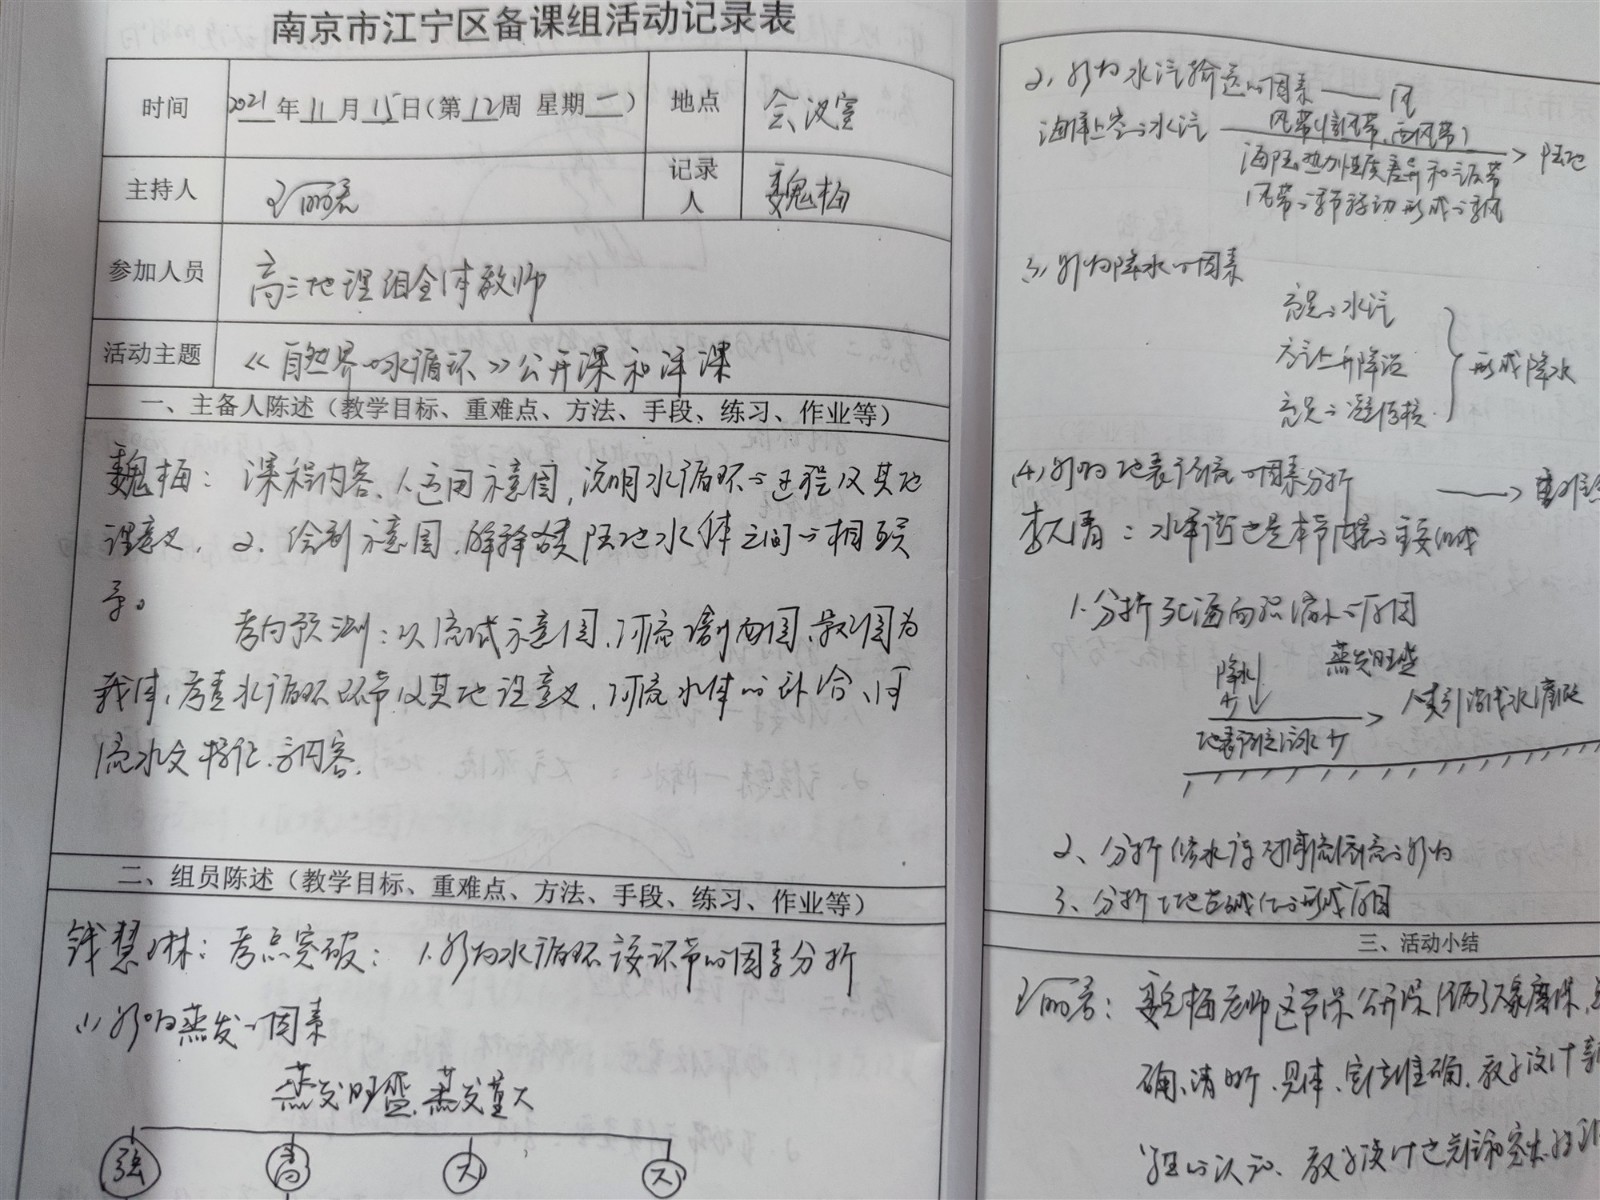 南京市江宁区备课组活动记录表
时间 2021年11月15日(第12周 星期二) 地点 会议室
主持人 王丽君 记录人 魏梅
参加人员 高三地理组全体教师
活动主题 《自然界的水循环》公开课和评课
一、主备人陈述(教学目标、重难点、方法、手段、练习、作业等)
魏梅：课程内容、1.运用示意图，说明水循环的过程及其地
理意义。2.绘制示意图，解释各类陆地水体之间的相互关
系。
考向预测：以流域示意图、河流剖面图、景观图为
载体，考查水循环环节及其地理意义、河流水体的补给、河
流水文特征、等内容。
二、组员陈述(教学目标、重难点、方法、手段、练习、作业等)
钱慧琳：考点突破：1.影响水循环该环节的因素分析
(1)影响蒸发的因素
蒸发旺盛，蒸发量大
强 高 大 大
2、影响水汽输送的因素——风
海洋上空的水汽 风带(信风带、西风带) 陆地
海陆热力性质差异和气压带
风带的季节移动形成的季风
3、影响降水的因素
充足的水汽
气流上升降温
充足的凝结核
形成降水
(4)影响地表径流的因素分析 重难点
水平衡也是本节内容的主要组成
1.分析死海面积缩小的原因
降水少 蒸发旺盛
地表径流水少 人类引河水灌溉
2、分析修水库对河流径流的影响
3、分析土地盐碱化的形成原因
三、活动小结
王丽君：魏梅老师这节课公开课经历了大家磨课，
确、清晰、具体、定位准确，教学设计
的认知、教学设计也